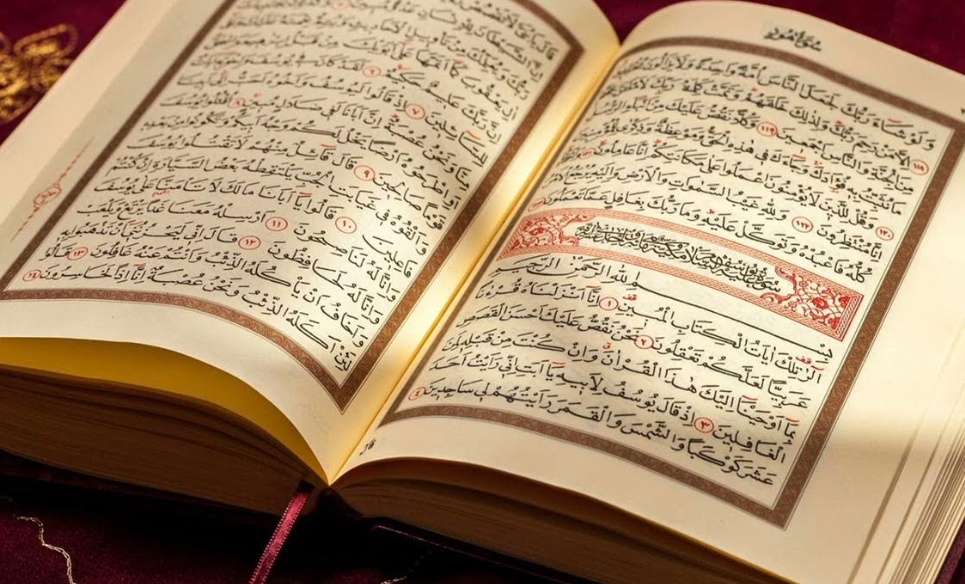 سُورَةُ هُودٍ
وَلَوْ شَاءَ رَبُّكَ لَجَعَلَ النَّاسَ أُمَّةً وَاحِدَةً وَلَا يَزَالُونَ
اِلَّا مَنْ رَحِمَ رَبُّكَ وَلِذٰلِكَ خَلَقَهُمْ وَتَمَّتْ كَلِمَةُ رَبِّكَ لَاَمْلَـَٔنَّ
مِنَ الْجِنَّةِ وَالنَّاسِ اَجْمَعِينَ ١١٩ وَكُلًّا نَقُصُّ عَلَيْكَ مِنْ اَنْبَاءِ الرُّسُلِ
مَا نُثَبِّتُ بِهِ فُؤَادَكَ وَجَاءَكَ فِي هٰذِهِ الْحَقُّ وَمَوْعِظَةٌ
وَقُلْ لِلَّذِينَ لَا يُؤْمِنُونَ اعْمَلُوا عَلٰى مَكَانَتِكُمْ اِنَّا عَامِلُونَ
اِنَّا مُنْتَظِرُونَ ١٢٢ وَلِلّٰهِ غَيْبُ السَّمٰوَاتِ وَالْاَرْضِ وَاِلَيْهِ يُرْجَعُ
كُلُّهُ فَاعْبُدْهُ وَتَوَكَّلْ عَلَيْهِ وَمَا رَبُّكَ بِغَافِلٍ عَمَّا تَعْمَلُونَ
سُورَةُ يُوسُفَ
بِسْمِ اللّٰهِ الرَّحْمٰنِ الرَّحِيمِ
الٓرٰ تِلْكَ اٰيَاتُ الْكِتَابِ الْمُبِينِ ١ اِنَّا اَنْزَلْنَاهُ قُرْءٰنًا
عَرَبِيًّا لَعَلَّكُمْ تَعْقِلُونَ ٢ نَحْنُ نَقُصُّ عَلَيْكَ اَحْسَنَ الْقَصَصِ
بِمَا اَوْحَيْنَا اِلَيْكَ هٰذَا الْقُرْاٰنَ وَاِنْ كُنْتَ مِنْ قَبْلِهِ لَمِنَ
الْغَافِلِينَ ٣ اِذْ قَالَ يُوسُفُ لِاَبِيهِ يَا اَبَتِ اِنِّي رَاَيْتُ اَحَدَ
عَشَرَ كَوْكَبًا وَالشَّمْسَ وَالْقَمَرَ رَاَيْتُهُمْ لِي سَاجِدِينَ ٤
قال
قَالَ يَا بُنَيَّ لَا تَقْصُصْ
اِنَّ الشَّيْطَانَ
رَبُّكَ وَيُعَلِّمُكَ مِنْ تَأْوِيلِ
اٰلِ يَعْقُوبَ كَمَا اَتَمَّهَا عَلٰى اَبَوَيْكَ مِنْ قَبْلُ
اِنَّ رَبَّكَ عَلِيمٌ حَكِيمٌ ٦ لَقَدْ كَانَ فِي يُوسُفَ وَاِخْوَتِهِ اٰيَاتٌ
لِلسَّائِلِينَ ٧ اِذْ قَالُوا لَيُوسُفُ وَاَخُوهُ اَحَبُّ اِلٰى اَبِينَا
مِنَّا وَنَحْنُ عُصْبَةٌ اِنَّ اَبَانَا لَفِي ضَلَالٍ مُبِينٍ ٨ اُقْتُلُوا يُوسُفَ
اَوِ اطْرَحُوهُ اَرْضًا يَخْلُ لَكُمْ وَجْهُ اَبِيكُمْ وَتَكُونُوا مِنْ بَعْدِهِ
قَوْمًا صَالِحِينَ ٩ قَالَ قَائِلٌ مِنْهُمْ لَا تَقْتُلُوا يُوسُفَ
وَاَلْقُوهُ فِي غَيَابَتِ الْجُبِّ يَلْتَقِطْهُ بَعْضُ السَّيَّارَةِ اِنْ كُنْتُمْ
فَاعِلِينَ ١٠ قَالُوا يَا اَبَانَا مَالَكَ لَا تَاْمَنَّا عَلٰى يُوسُفَ
وَاِنَّا لَهُ لَنَاصِحُونَ ١١ اَرْسِلْهُ مَعَنَا غَدًا يَرْتَعْ وَيَلْعَبْ
وَاِنَّا لَهُ لَحَافِظُونَ ١٢ قَالَ اِنِّي لَيَحْزُنُنِي اَنْ تَذْهَبُوا بِهِ
وَاَخَافُ اَنْ يَاْكُلَهُ الذِّئْبُ وَاَنْتُمْ عَنْهُ غَافِلُونَ ١٣ قَالُوا
لَئِنْ اَكَلَهُ الذِّئْبُ وَنَحْنُ عُصْبَةٌ اِنَّا اِذًا لَخَاسِرُونَ ١٤